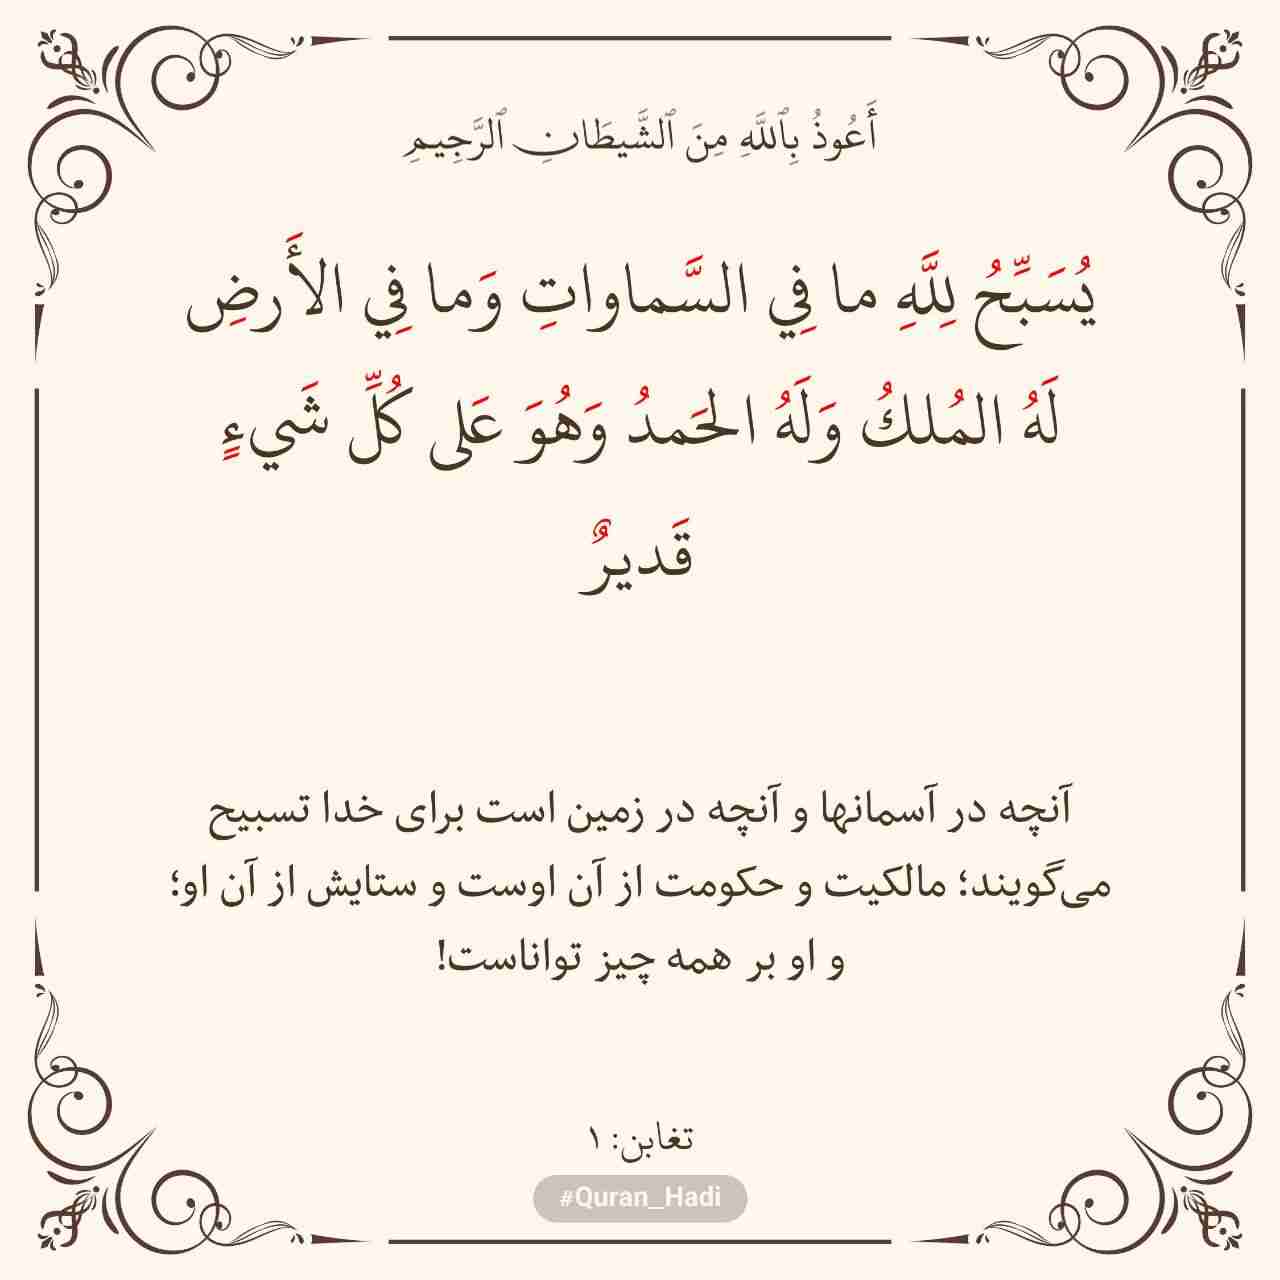 أَعُوذُ بِٱللَّهِ مِنَ ٱلشَّيطَانِ ٱلرَّجِيمِ
يُسَبِّحُ لِلَّهِ ما فِي السَّماواتِ وَما فِي الأَرضِ
لَهُ المُلكُ وَلَهُ الحَمدُ وَهُوَ عَلى كُلِّ شَيءٍ
قَديرٌ
آنچه در آسمانها و آنچه در زمین است برای خدا تسبیح
می‌گویند؛ مالکیت و حکومت از آن اوست و ستایش از آن او؛
و او بر همه چیز تواناست!
تغابن: ۱
#Quran_Hadi